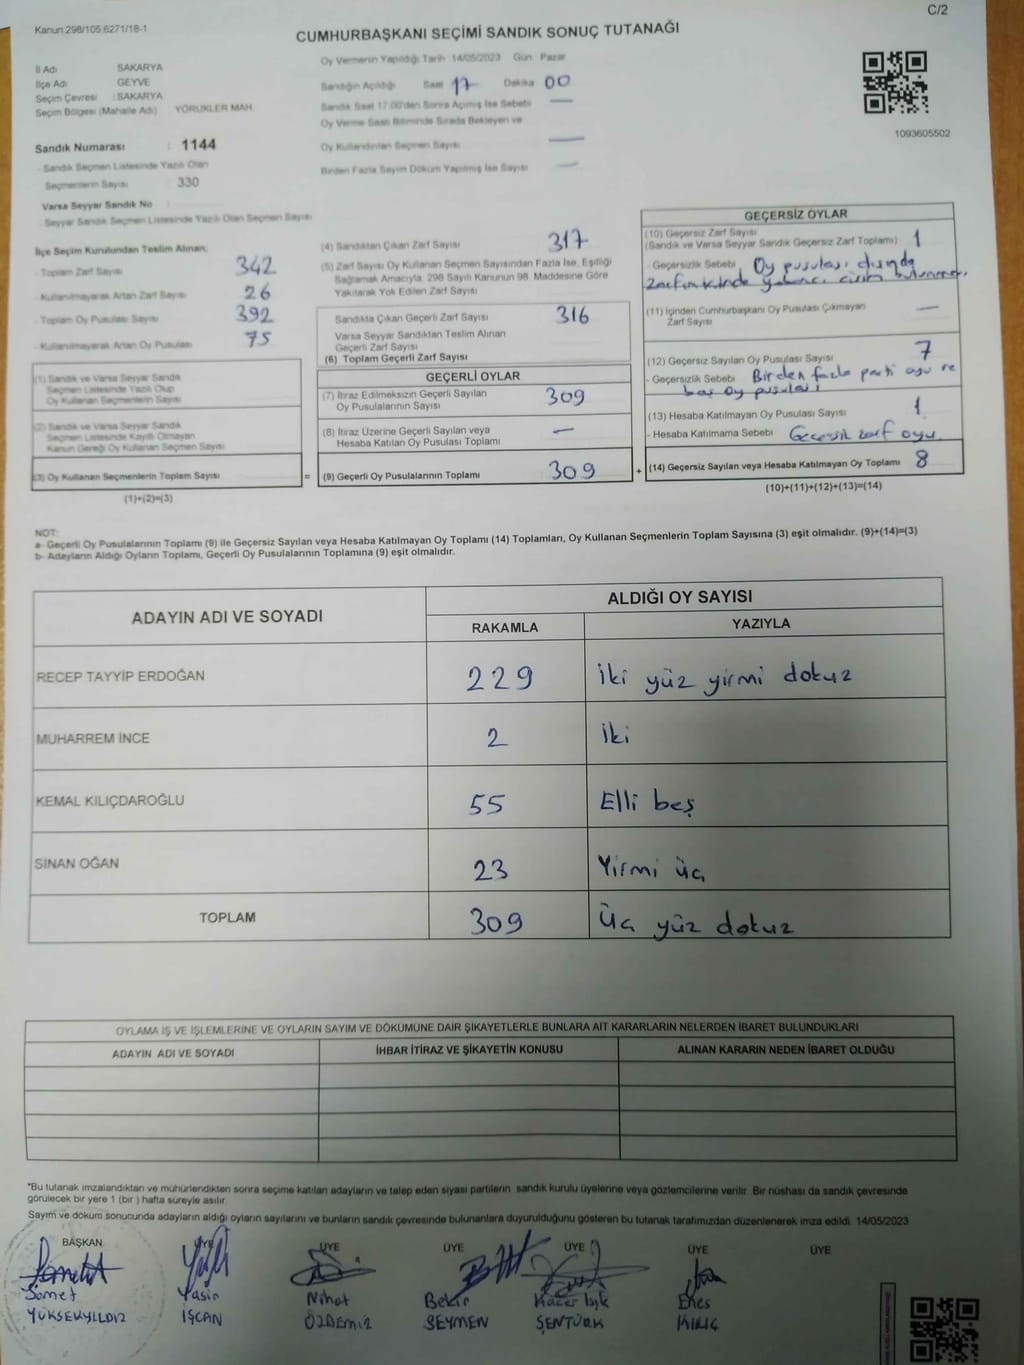 C/2
Kanun:298/105;6271/18-1
CUMHURBAŞKANI SEÇİMİ SANDIK SONUÇ TUTANAĞI
İl Adı SAKARYA
İlçe Adı GEYVE
Seçim Çevresi : SAKARYA
Seçim Bölgesi (Mahalle Adı) YÖRÜKLER MAH.
Oy Vermenin Yapıldığı Tarih 14/05/2023 Gün Pazar
Sandığın Açıldığı Saat 17 Dakika 00
Sandık Saat 17:00'den Sonra Açılmış İse Sebebi —
Oy Verme Saati Bitiminde Sırada Bekleyen ve
Oy Kullandırılan Seçmen Sayısı —
Birden Fazla Sayım Döküm Yapılmış İse Sayısı —
1093605502
Sandık Numarası : 1144
- Sandık Seçmen Listesinde Yazılı Olan
Seçmenlerin Sayısı : 330
Varsa Seyyar Sandık No
- Seyyar Sandık Seçmen Listesinde Yazılı Olan Seçmen Sayısı
İlçe Seçim Kurulundan Teslim Alınan;
- Toplam Zarf Sayısı 342
- Kullanılmayarak Artan Zarf Sayısı 26
- Toplam Oy Pusulası Sayısı 392
- Kullanılmayarak Artan Oy Pusulası 75
(1) Sandık ve Varsa Seyyar Sandık
Seçmen Listesinde Yazılı Olup
Oy Kullanan Seçmenlerin Sayısı
(2) Sandık ve Varsa Seyyar Sandık
Seçmen Listesinde Kayıtlı Olmayan
Kanun Gereği Oy Kullanan Seçmen Sayısı
(3) Oy Kullanan Seçmenlerin Toplam Sayısı
(1)+(2)=(3)
(4) Sandıktan Çıkan Zarf Sayısı 317
(5) Zarf Sayısı Oy Kullanan Seçmen Sayısından Fazla İse, Eşitliği
Sağlamak Amacıyla, 298 Sayılı Kanunun 98. Maddesine Göre
Yakılarak Yok Edilen Zarf Sayısı
Sandıkta Çıkan Geçerli Zarf Sayısı 316
Varsa Seyyar Sandıktan Teslim Alınan
Geçerli Zarf Sayısı
(6) Toplam Geçerli Zarf Sayısı
GEÇERLİ OYLAR
(7) İtiraz Edilmeksizin Geçerli Sayılan
Oy Pusulalarının Sayısı 309
(8) İtiraz Üzerine Geçerli Sayılan veya
Hesaba Katılan Oy Pusulası Toplamı —
= (9) Geçerli Oy Pusulalarının Toplamı 309 +
GEÇERSİZ OYLAR
(10) Geçersiz Zarf Sayısı
(Sandık ve Varsa Seyyar Sandık Geçersiz Zarf Toplamı) 1
- Geçersizlik Sebebi Oy pusulası dışında
zarfın içinde yabancı cisim bulunması
(11) İçinden Cumhurbaşkanı Oy Pusulası Çıkmayan
Zarf Sayısı —
(12) Geçersiz Sayılan Oy Pusulası Sayısı 7
- Geçersizlik Sebebi Birden fazla parti oyu ve
boş oy pusulası
(13) Hesaba Katılmayan Oy Pusulası Sayısı 1
- Hesaba Katılmama Sebebi Geçersiz zarf oyu
(14) Geçersiz Sayılan veya Hesaba Katılmayan Oy Toplamı 8
(10)+(11)+(12)+(13)=(14)
NOT:
a- Geçerli Oy Pusulalarının Toplamı (9) ile Geçersiz Sayılan veya Hesaba Katılmayan Oy Toplamı (14) Toplamları, Oy Kullanan Seçmenlerin Toplam Sayısına (3) eşit olmalıdır. (9)+(14)=(3)
b- Adayların Aldığı Oyların Toplamı, Geçerli Oy Pusulalarının Toplamına (9) eşit olmalıdır.
ADAYIN ADI VE SOYADI ALDIĞI OY SAYISI
RAKAMLA YAZIYLA
RECEP TAYYİP ERDOĞAN 229 iki yüz yirmi dokuz
MUHARREM İNCE 2 iki
KEMAL KILIÇDAROĞLU 55 Elli beş
SİNAN OĞAN 23 Yirmi üç
TOPLAM 309 Üç yüz dokuz
OYLAMA İŞ VE İŞLEMLERİNE VE OYLARIN SAYIM VE DÖKÜMÜNE DAİR ŞİKAYETLERLE BUNLARA AİT KARARLARIN NELERDEN İBARET BULUNDUKLARI
ADAYIN ADI VE SOYADI İHBAR İTİRAZ VE ŞİKAYETİN KONUSU ALINAN KARARIN NEDEN İBARET OLDUĞU
*Bu tutanak imzalandıktan ve mühürlendikten sonra seçime katılan adayların ve talep eden siyasi partilerin sandık kurulu üyelerine veya gözlemcilerine verilir. Bir nüshası da sandık çevresinde
görülecek bir yere 1 (bir ) hafta süreyle asılır.
Sayım ve döküm sonucunda adayların aldığı oyların sayılarını ve bunların sandık çevresinde bulunanlara duyurulduğunu gösteren bu tutanak tarafımızdan düzenlenerek imza edildi. 14/05/2023
BAŞKAN ÜYE ÜYE ÜYE ÜYE ÜYE ÜYE
Samet Yasin Nihat Bekir Hacer Işık Enes
YÜKSEKYILDIZ İŞCAN ÖZDEMİR SEYMEN ŞENTÜRK KILIÇ